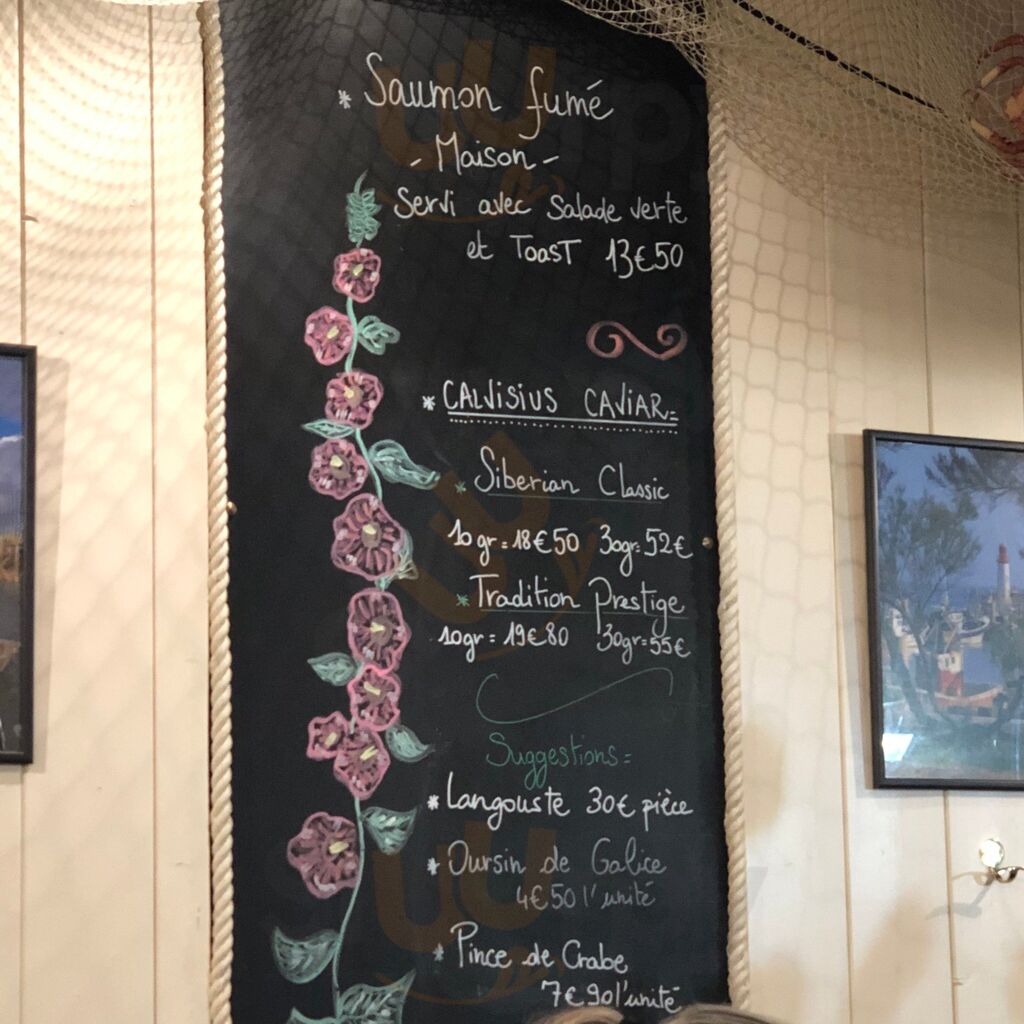 * Saumon fumé
- Maison -
Servi avec Salade verte
et Toast 13€50
* CALVISIUS CAVIAR=
* Siberian Classic
10gr = 18€50 30gr = 52€
* Tradition Prestige
10gr = 19€80 30gr = 55€
Suggestions =
* Langouste 30€ pièce
* Oursin de Galice
4€50 l'unité
* Pince de Crabe
7€90 l'unité